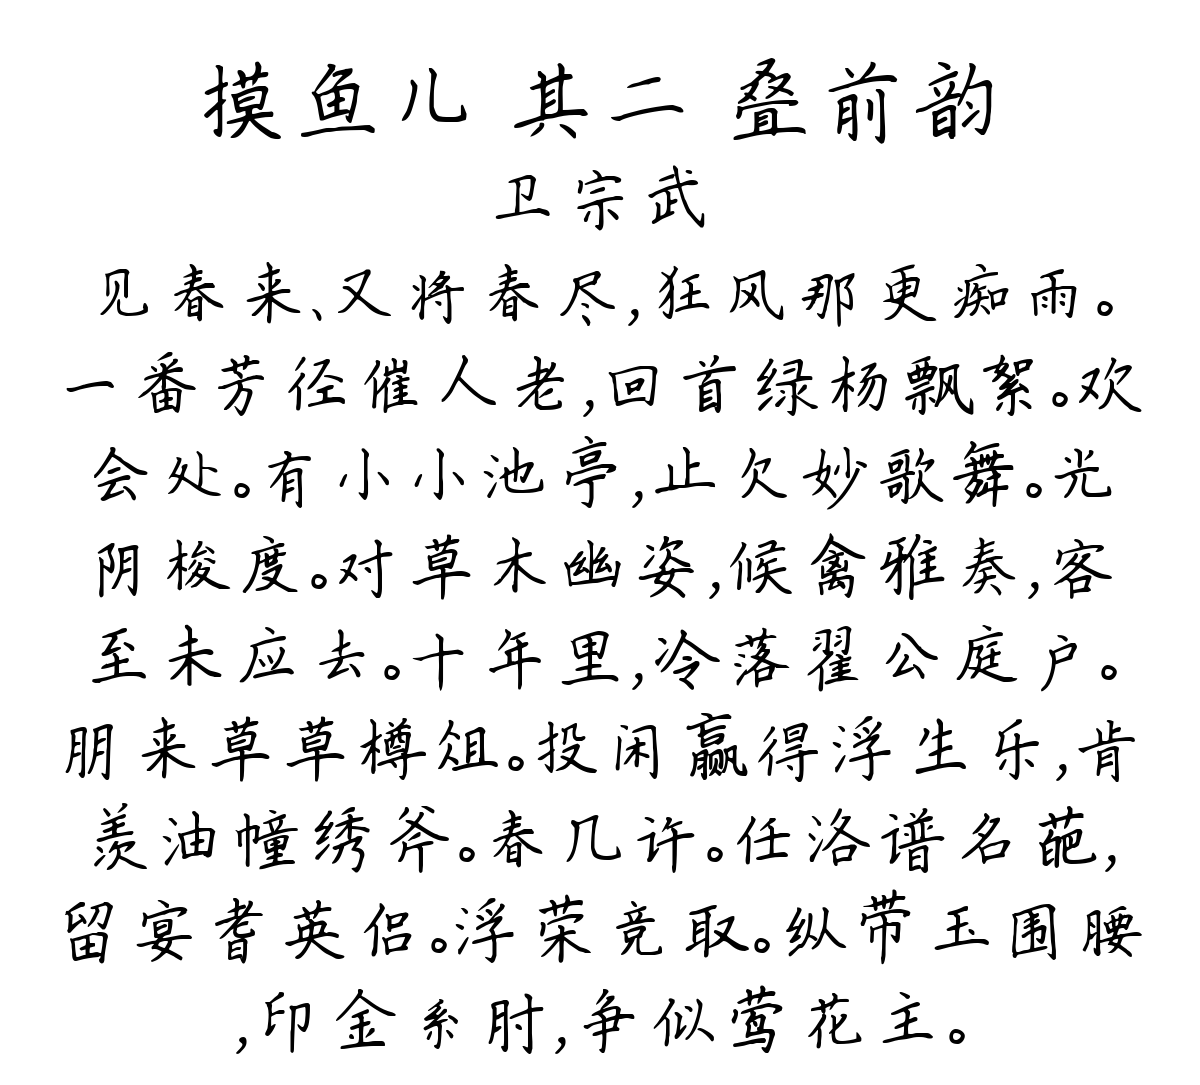 摸鱼儿 其二 叠前韵
卫宗武
见春来、又将春尽,狂风那更痴雨。
一番芳径催人老,回首绿杨飘絮。欢
会处。有小小池亭,止欠妙歌舞。光
阴梭度。对草木幽姿,候禽雅奏,客
至未应去。十年里,冷落翟公庭户。
朋来草草樽俎。投闲赢得浮生乐,肯
羡油幢绣斧。春几许。任洛谱名葩,
留宴耆英侣。浮荣竞取。纵带玉围腰
,印金系肘,争似莺花主。